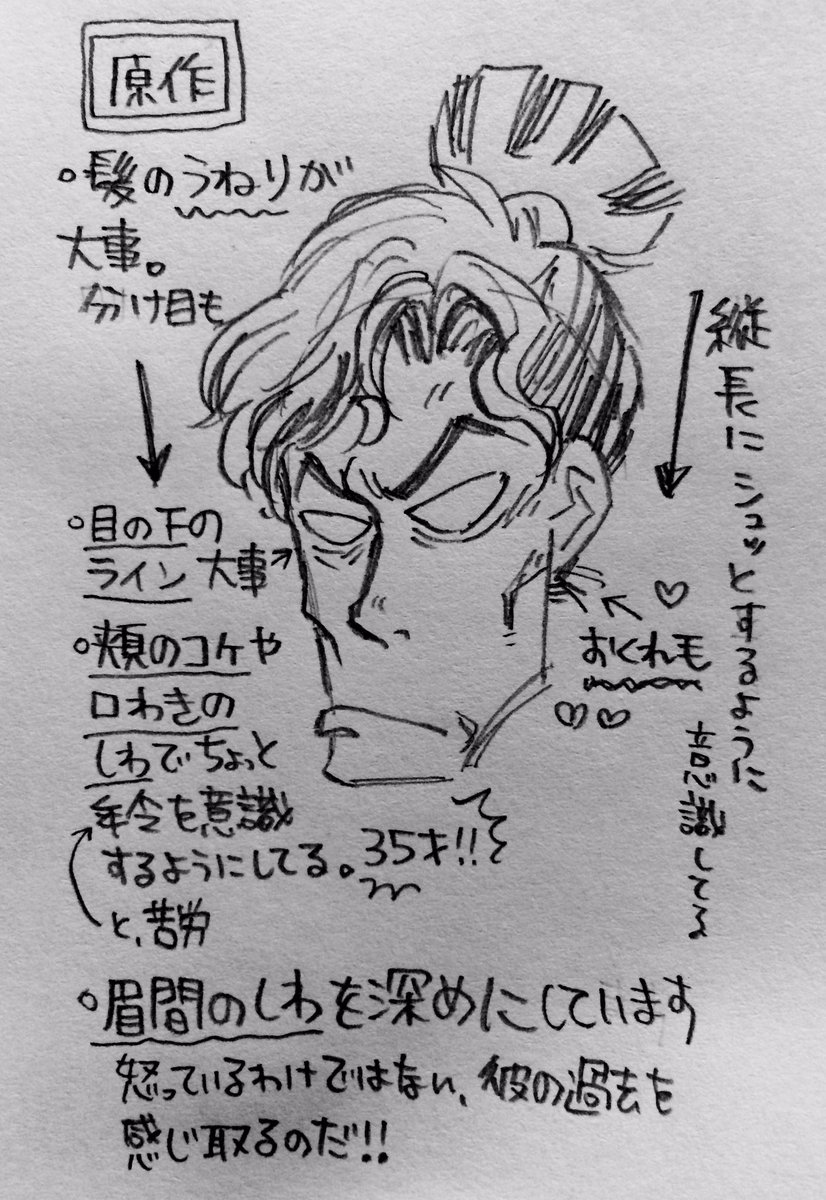 原作
・髪のうねりが
大事。
分け目も
・目の下の
ライン大事
・頬のコケや
口わきの
しわでちょっと
年令を意識
するようにしてる。35才!!
と、苦労
縦長にシュッとするように
意識してる
♡
おくれ毛
♡♡
・眉間のしわを深めにしています
怒っているわけではない、彼の過去を
感じ取るのだ!!